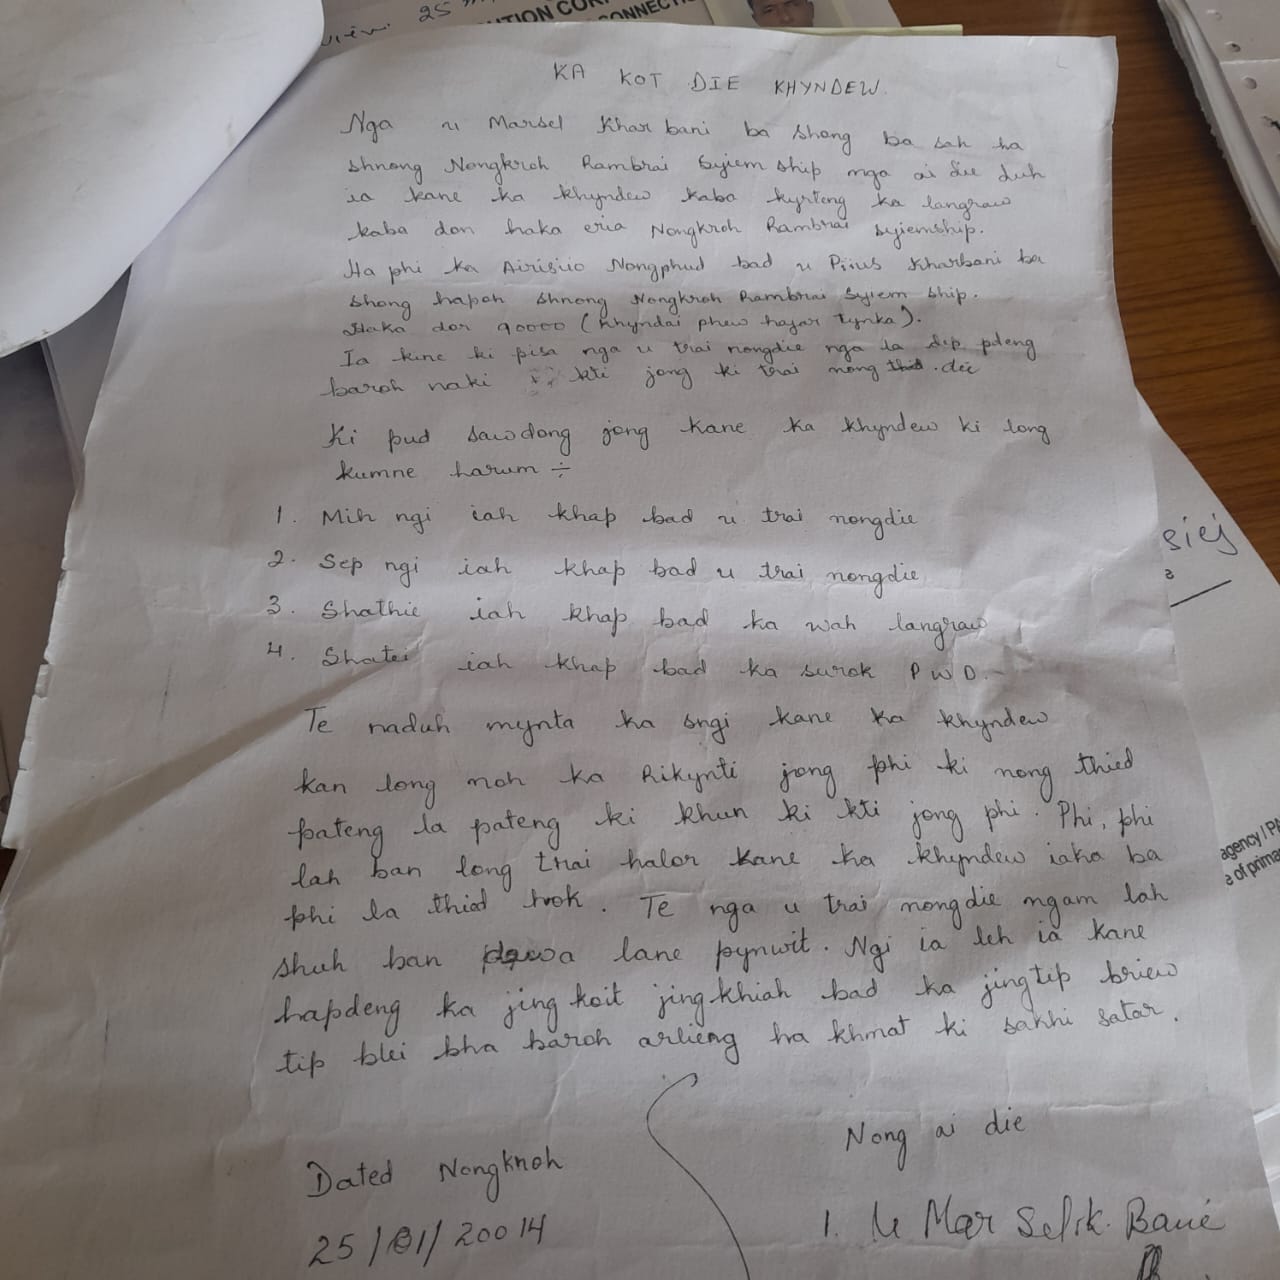 view 25
UTION COR
CONNECTI
KA KOT DIE KHYNDEW.
Nga u Marsel Khar bani ba shong ba sah ha
shnong Nongkroh Rambrai Syiem ship nga ai die duh
ia kane ka khyndew kaba kyrteng ka langraw
kaba don haka eria Nongkroh Rambrai syiemship.
Ha phi ka Airisiio Nongphud bad u Piius Kharbani ba
shong hapoh shnong Nongkroh Rambrai Syiem ship.
Haka dor 90000 (khyndai phew hajar tynka).
Ia kine ki pisa nga u trai nongdie nga la dep pdeng
baroh naki kti jong ki trai nong die
Ki pud sawdong jong kane ka khyndew ki long
kumne harum ÷
1. Mih ngi iah khap bad u trai nongdie
2. Sep ngi iah khap bad u trai nongdie
3. Shathie iah khap bad ka wah langraw
4. Shatei iah khap bad ka surok PWD.
Te naduh mynta ka sngi kane ka khyndew
kan long noh ka Rikynti jong phi ki nong thied
pateng la pateng ki khun ki kti jong phi. Phi, phi
lah ban long trai halor kane ka khyndew iaka ba
phi la thied hok. Te nga u trai nongdie ngam lah
shuh ban dawa lane pynwit. Ngi ia leh ia kane
hapdeng ka jing koit jing khiah bad ka jingtip briew
tip blei bha baroh arlieng ha khmat ki sakhi satar.
Nong ai die
Dated Nongknoh
25/01/20014
1. U Mar Sefik. Banié
siej
agency / PA
e of prima